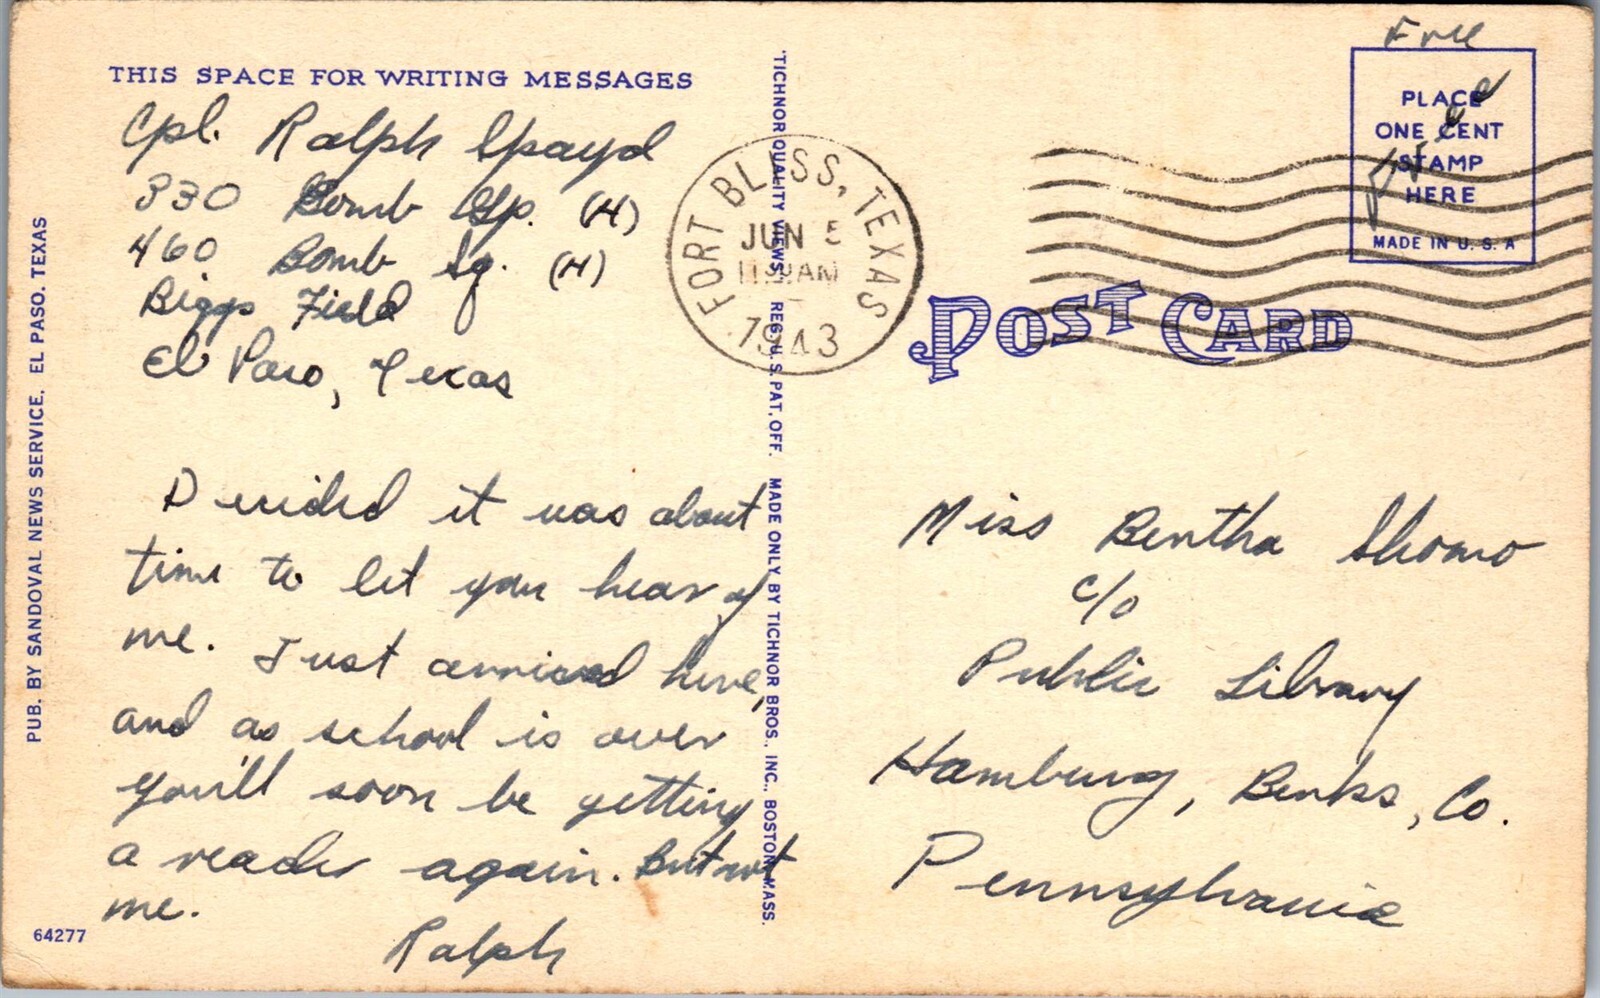 THIS SPACE FOR WRITING MESSAGES
Cpl. Ralph Spayd
330 Bomb Gp. (H)
460 Bomb Sq. (H)
Biggs Field
El Paso, Texas
Decided it was about
time to let you hear of
me. Just arrived here,
and as school is over
you'll soon be getting
a reader again. But not
me.
Ralph
64277
PUB. BY SANDOVAL NEWS SERVICE, EL PASO, TEXAS
"TICHNOR QUALITY VIEWS," REG. U. S. PAT. OFF. MADE ONLY BY TICHNOR BROS., INC., BOSTON, MASS.
FORT BLISS, TEXAS
JUN 5
AM
1943
Free
PLACE
ONE CENT
STAMP
HERE
MADE IN U. S. A
POST CARD
Miss Bertha Shomo
c/o
Public Library
Hamburg, Berks, Co.
Pennsylvania